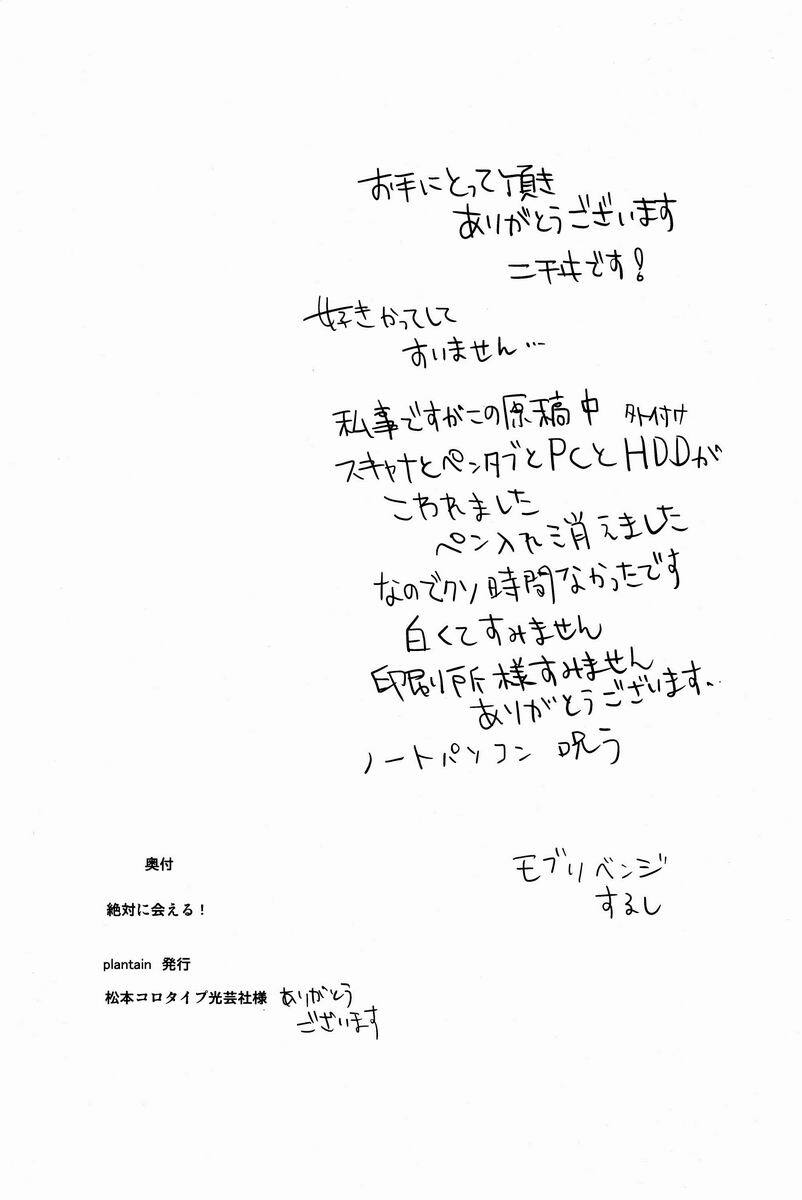 お手にとって頂き
ありがとうございます
二千ヰです!
好きかってして
すいません…
私事ですがこの原稿中 外付け
スキャナとペンタブとPCとHDDが
こわれました
ペン入れ消えました
なのでクソ時間なかったです
白くてすみません
印刷所様すみません
ありがとうございます、
ノートパソコン 呪う
モブリベンジ
するし
奥付
絶対に会える!
plantain 発行
松本コロタイプ光芸社様 ありがとう
ございます